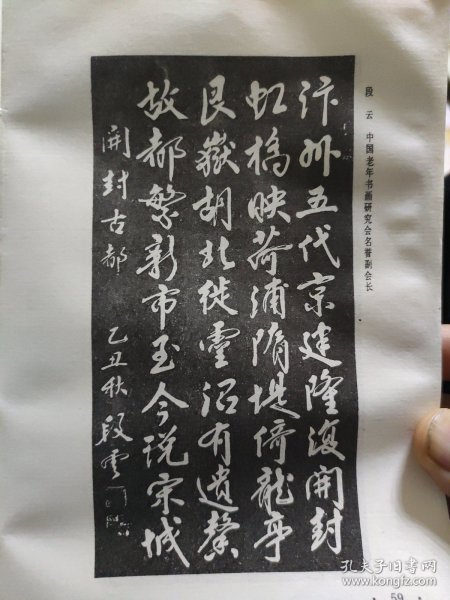 段云 中国老年书画研究会名誉副会长
汴州五代京建隆復開封
虹橋映荷浦隋堤倚龍亭
艮嶽胡北徙靈沼有遺馨
故都繁新市至今说宋城
開封古都 乙丑秋 段雲
59
孔夫子旧书网